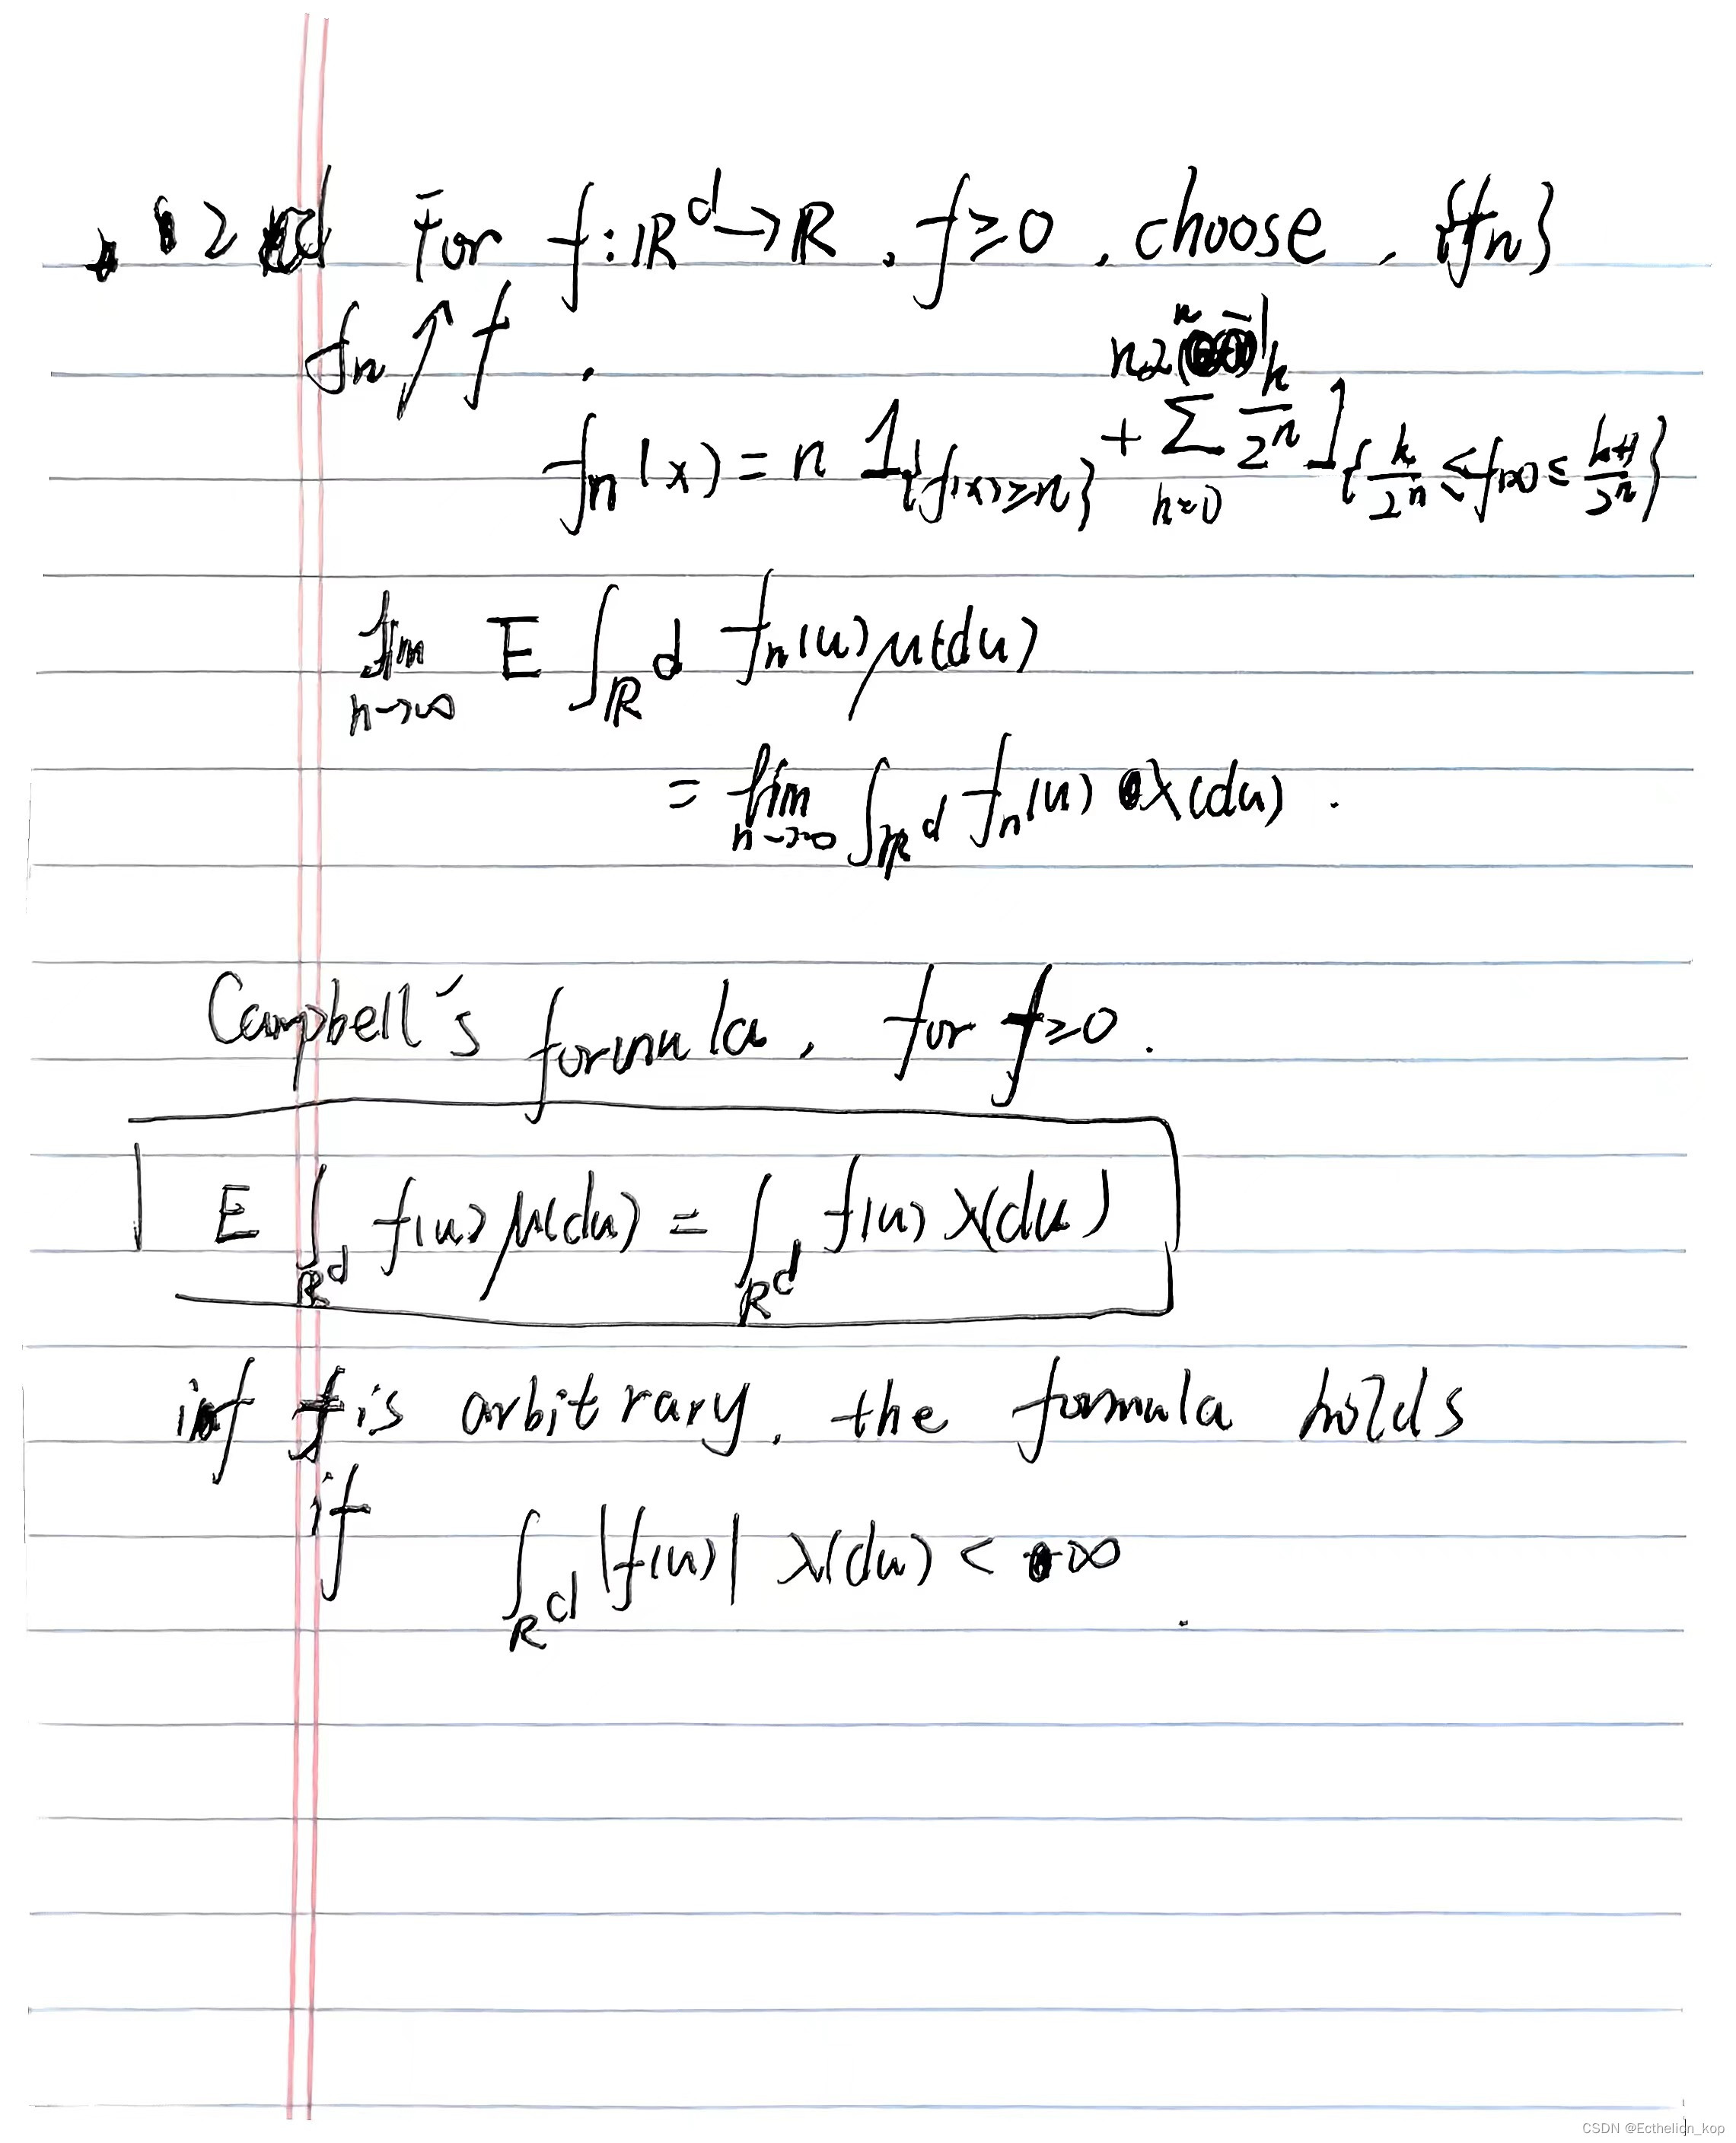 2 For f: ℝ^d → ℝ, f ≥ 0, choose, {f_n}
f_n ↑ f .
f_n(x) = n 1_{f(x) ≥ n} + \sum_{k=0}^{n2^n - 1} \frac{k}{2^n} 1_{\frac{k}{2^n} ≤ f(x) ≤ \frac{k+1}{2^n}}
lim_{n→∞} E ∫_{ℝ^d} f_n(u) μ(du)
= lim_{n→∞} ∫_{ℝ^d} f_n(u) λ(du) .
Campbell's formula, for f ≥ 0 .
E ∫_{ℝ^d} f(u) μ(du) = ∫_{ℝ^d} f(u) λ(du)
if f is arbitrary, the formula holds
if ∫_{ℝ^d} |f(u)| λ(du) < ∞ .
CSDN @Ecthelion_kop